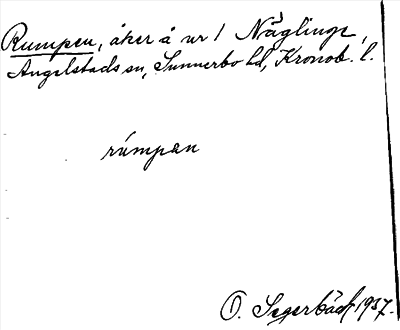 Rumpen, åker å nr 1 Näglinge,
Angelstads sn, Sunnerbo hd, Kronob. l.
rúmpæn
O. Segerbäck 1937.